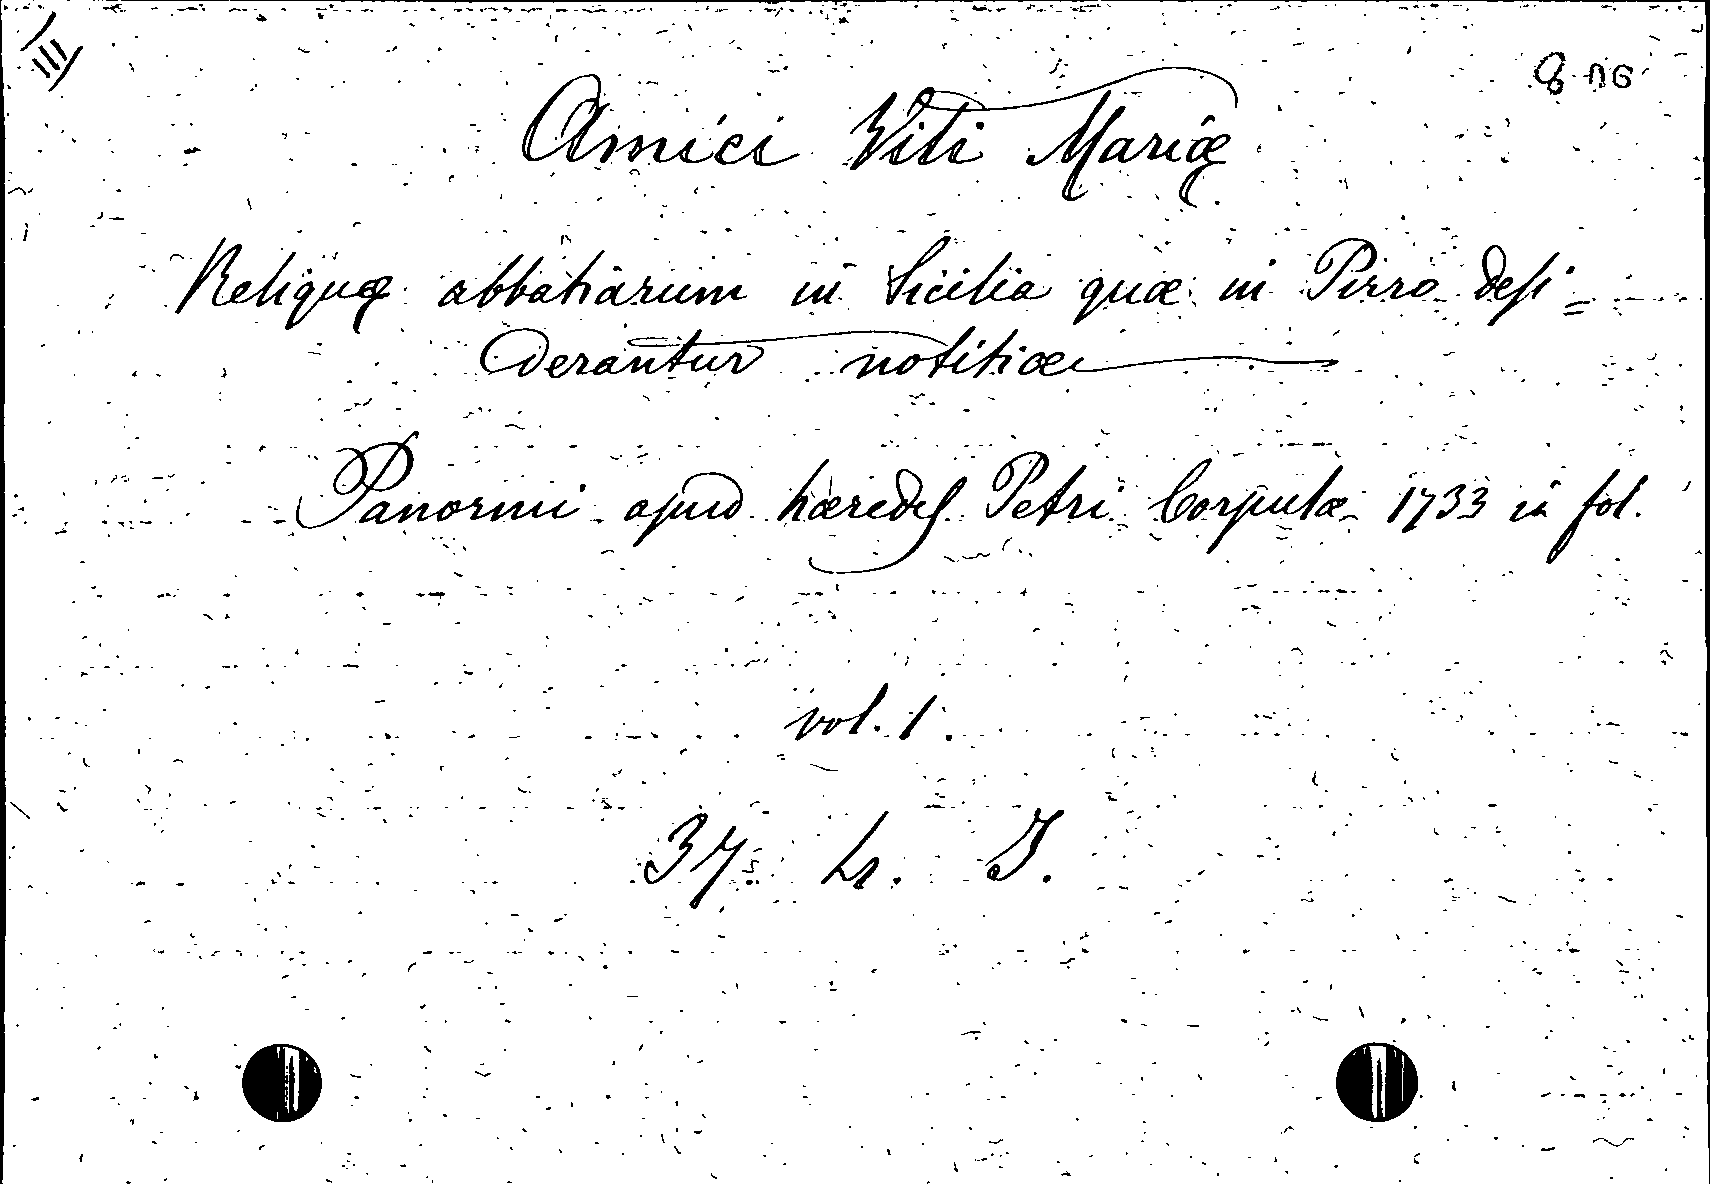 III
Amici Viti Mariæ
Reliquæ abbatiarum in Sicilia quæ in Pirro desi=
derantur notitiæ
Panormi apud hæredes Petri Corputæ 1733 in fol.
vol. 1.
37. L. I.